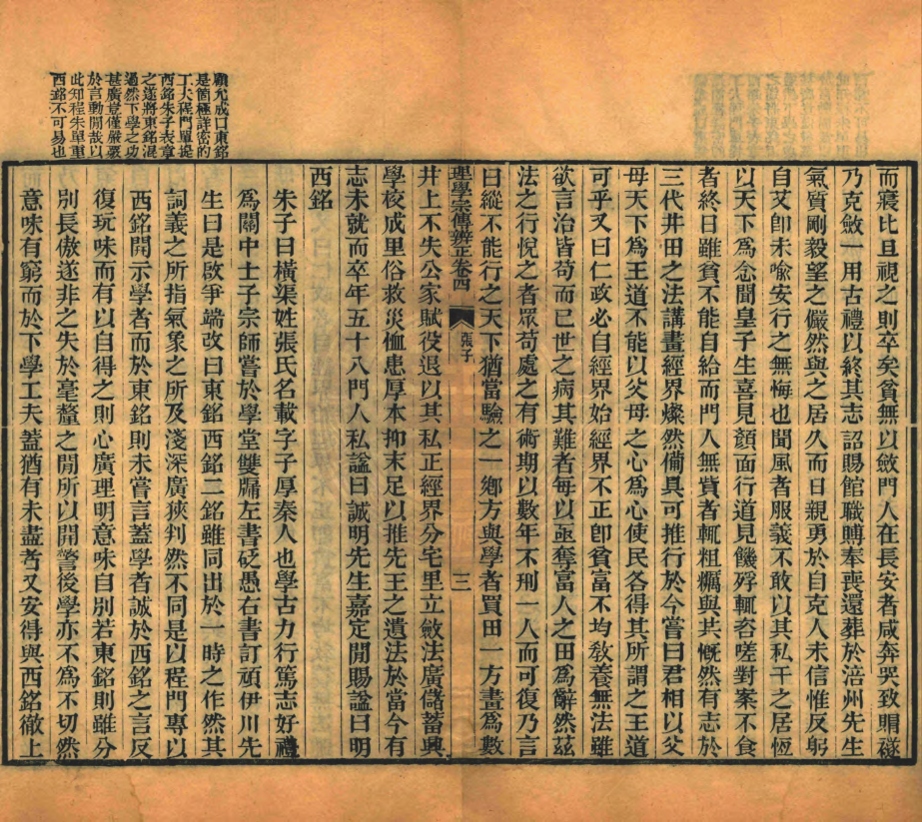 而寢比旦視之則卒矣貧無以斂門人在長安者咸奔哭致賵襚
乃克斂一用古禮以終其志詔賜館職賻奉喪還葬於涪州先生
氣質剛毅望之儼然與之居久而日親勇於自克人未信惟反躬
自艾卽未喩安行之無悔也聞風者服義不敢以其私干之居恆
以天下爲念聞皇子生喜見顏面行道見饑殍輒咨嗟對案不食
者終日雖貧不能自給而門人無貲者輒粗糲與共慨然有志於
三代井田之法講畫經界燦然備具可推行於今嘗曰君相以父
母天下爲王道不能以父母之心爲心使民各得其所謂之王道
可乎又曰仁政必自經界始經界不正卽貧富不均敎養無法雖
欲言治皆苟而已世之病其難者每以亟奪富人之田爲辭然茲
法之行悅之者眾苟處之有術期以數年不刑一人而可復乃言
曰縱不能行之天下猶當驗之一鄉方與學者買田一方畫爲數
理學宗傳辨正卷四 張子 三
井上不失公家賦役退以其私正經界分宅里立斂法廣儲蓄興
學校成里俗救災恤患厚本抑末足以推先王之遺法於當今有
志未就而卒年五十八門人私諡曰誠明先生嘉定閒賜諡曰明
西銘
朱子曰橫渠姓張氏名載字子厚秦人也學古力行篤志好禮
爲關中士子宗師嘗於學堂雙牖左書砭愚右書訂頑伊川先
生曰是啟爭端改曰東銘西銘二銘雖同出於一時之作然其
詞義之所指氣象之所及淺深廣狹判然不同是以程門專以
西銘開示學者而於東銘則未嘗言蓋學者誠於西銘之言反
復玩味而有以自得之則心廣理明意味自別若東銘則雖分
別長傲遂非之失於毫釐之閒所以開警後學亦不爲不切然
意味有窮而於下學工夫蓋猶有未盡者又安得與西銘徹上
顧允成曰東銘
是箇極詳密的
工夫程門單提
西銘朱子表章
之遂將東銘混
過然下學之功
甚廣豈僅嚴毅
於言動閒哉以
此知程朱單重
西銘不可易也